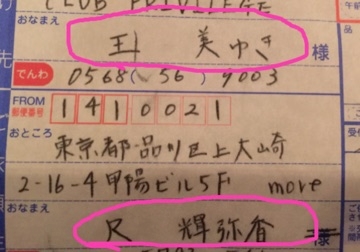 CLUB PRIVILEGE
おなまえ
王 美ゆき 様
でんわ 0568(56)9003
FROM
郵便番号 1410021
おところ
東京都品川区上大崎
2-16-4甲陽ビル5F more
おなまえ
尺 輝弥香